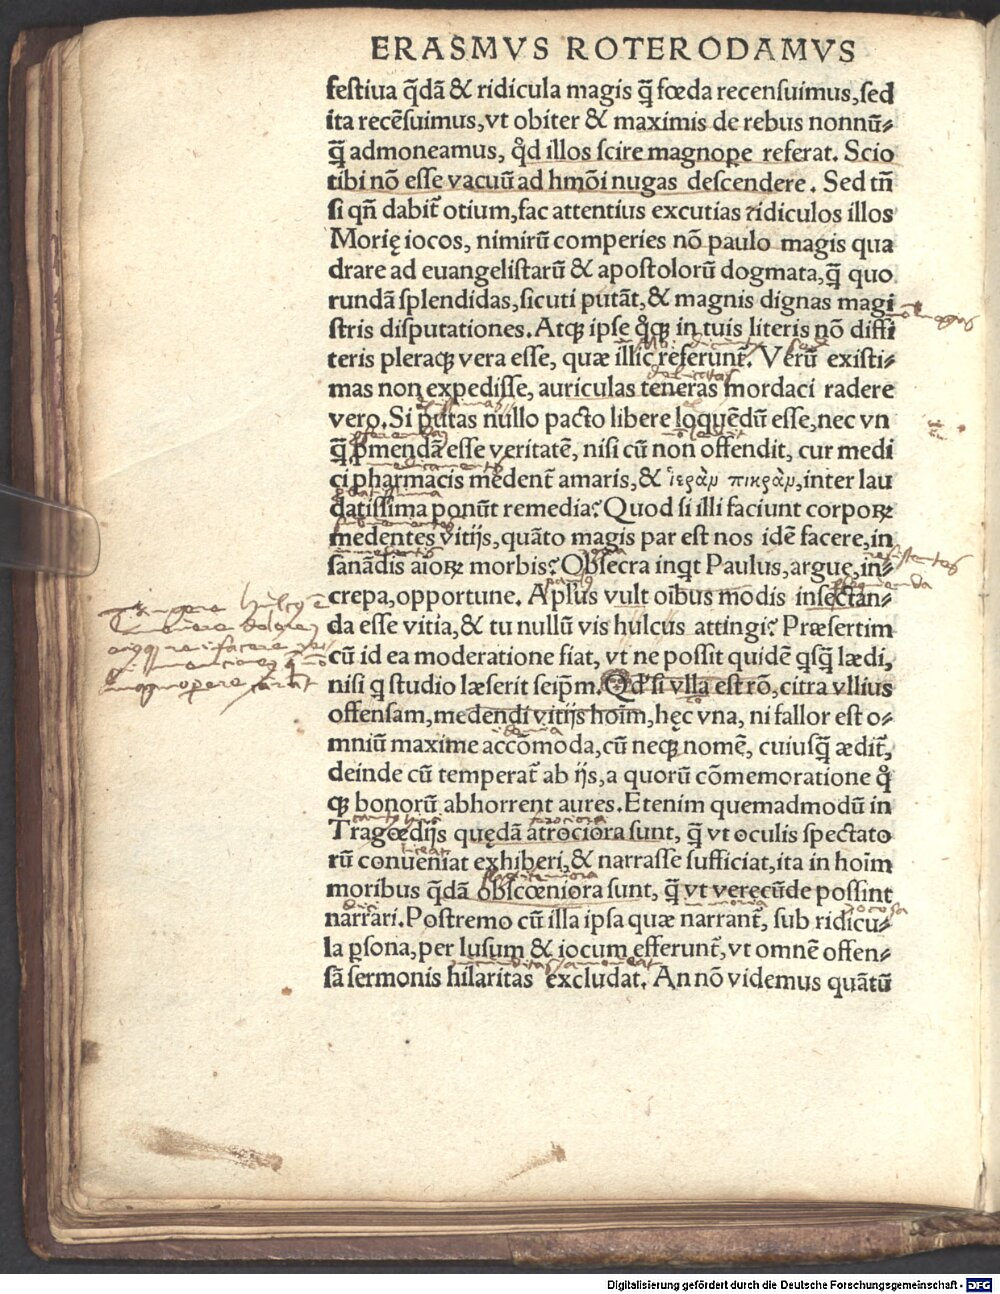 ERASMVS ROTERODAMVS
festiua q̄dā & ridicula magis q̄ȝ fœda recensuimus, sed
ita recēsuimus, vt obiter & maximis de rebus nonnū⸗
q̄ȝ admoneamus, qͦd illos scire magnoꝑe referat. Scio
tibi nō esse vacuū ad hmōi nugas descendere. Sed tn̄
si qn̄ dabit̄ otium, fac attentius excutias ridiculos illos
Morię iocos, nimirū comperies nō paulo magis qua
drare ad euangelistarū & apostolorū dogmata, q̄ȝ quo
rundā splendidas, sicuti putāt, & magnis dignas magi
stris disputationes. Atqꝫ ipse qͦqꝫ in tuis literis nō diffi
teris pleraqꝫ vera esse, quæ illic referunt̄. Verū existi⸗
mas non expedisse, auriculas teneras mordaci radere
vero. Si putas nullo pacto libere loquēdū esse, nec vn
q̄ȝ ꝓmendā esse veritatē, nisi cū non offendit, cur medi
ci pharmacis medent̄ amaris, & ἱερὰν πικρὰν, inter lau
datissima ponūt remedia? Quod si illi faciunt corpoꝝ
medentes vitijs, quāto magis par est nos idē facere, in
sanādis aioꝝ morbis? Obsecra inqͥt Paulus, argue, in⸗
crepa, opportune. Aplūs vult oībus modis insectan⸗
da esse vitia, & tu nullū vis hulcus attingi? Præsertim
cū id ea moderatione fiat, vt ne possit quidē qͥsqͣ̄ lædi,
nisi qͥ studio læserit seip̄m. Qd̄ si vlla est rō, citra vllius
offensam, medendi vitijs hoīm, hęc vna, ni fallor est o⸗
mniū maxime accōmoda, cū neqꝫ nomē, cuiusq̄ȝ ædit̄,
deinde cū temperat̄ ab ijs, a quorū cōmemoratione qͦ
qꝫ bonorū abhorrent aures. Etenim quemadmodū in
Tragœdijs quędā atrociora sunt, q̄ȝ vt oculis spectato
rū conueniat exhiberi, & narrasse sufficiat, ita in hoīm
moribus q̄dā obscœniora sunt, q̄ȝ vt verecūde possint
narrari. Postremo cū illa ipsa quæ narrant̄, sub ridicu⸗
la ꝑsona, per lusum & iocum efferunt̄, vt omnē offen⸗
sā sermonis hilaritas excludat. An nō videmus quātū
Digitalisierung gefördert durch die Deutsche Forschungsgemeinschaft - DFG